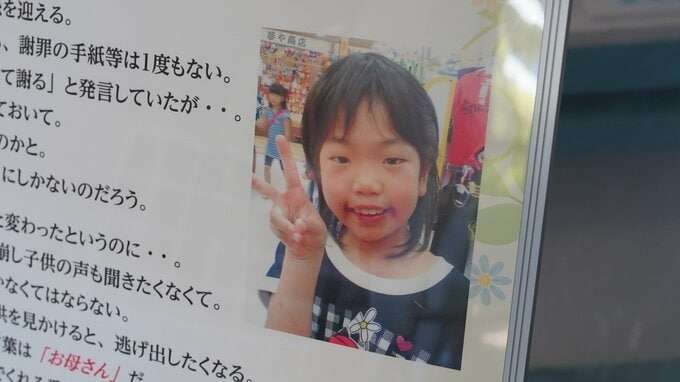 を迎える。
、謝罪の手紙等は1度もない。
て謝る」と発言していたが・・。
ておいて。
のかと。
にしかないのだろう。
変わったというのに・・。
崩し子供の声も聞きたくなくて。
なくてはならない。
供を見かけると、逃げ出したくなる。
葉は「お母さん」だ